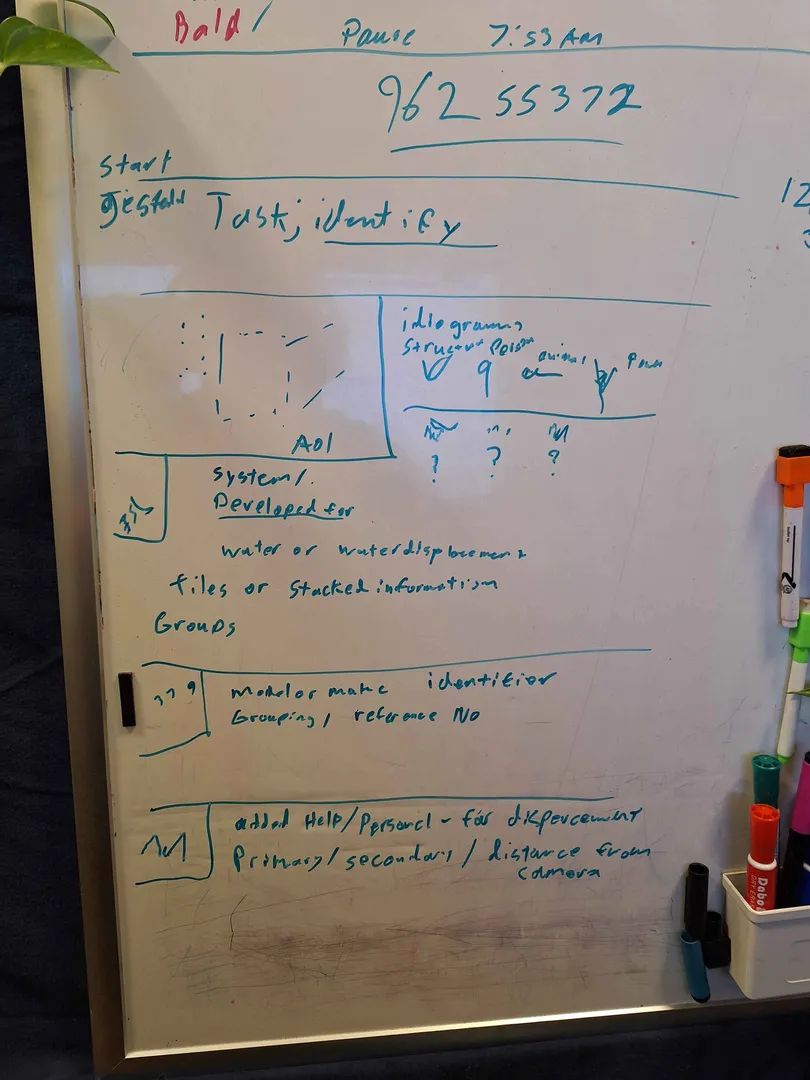 Bald/
Pause 7:53 AM
962 55372
Start
Task; identify
idiograms
Structur Person animal
? ? ?
Aol
system/.
Developed for
water or waterdisplacement
files or stacked information
Groups
379 Model or make identifier
Grouping, reference No
added Help/Personel - for dispercement
Primary/secondary/distance from
camera
12
Dabo
DRY ERASE